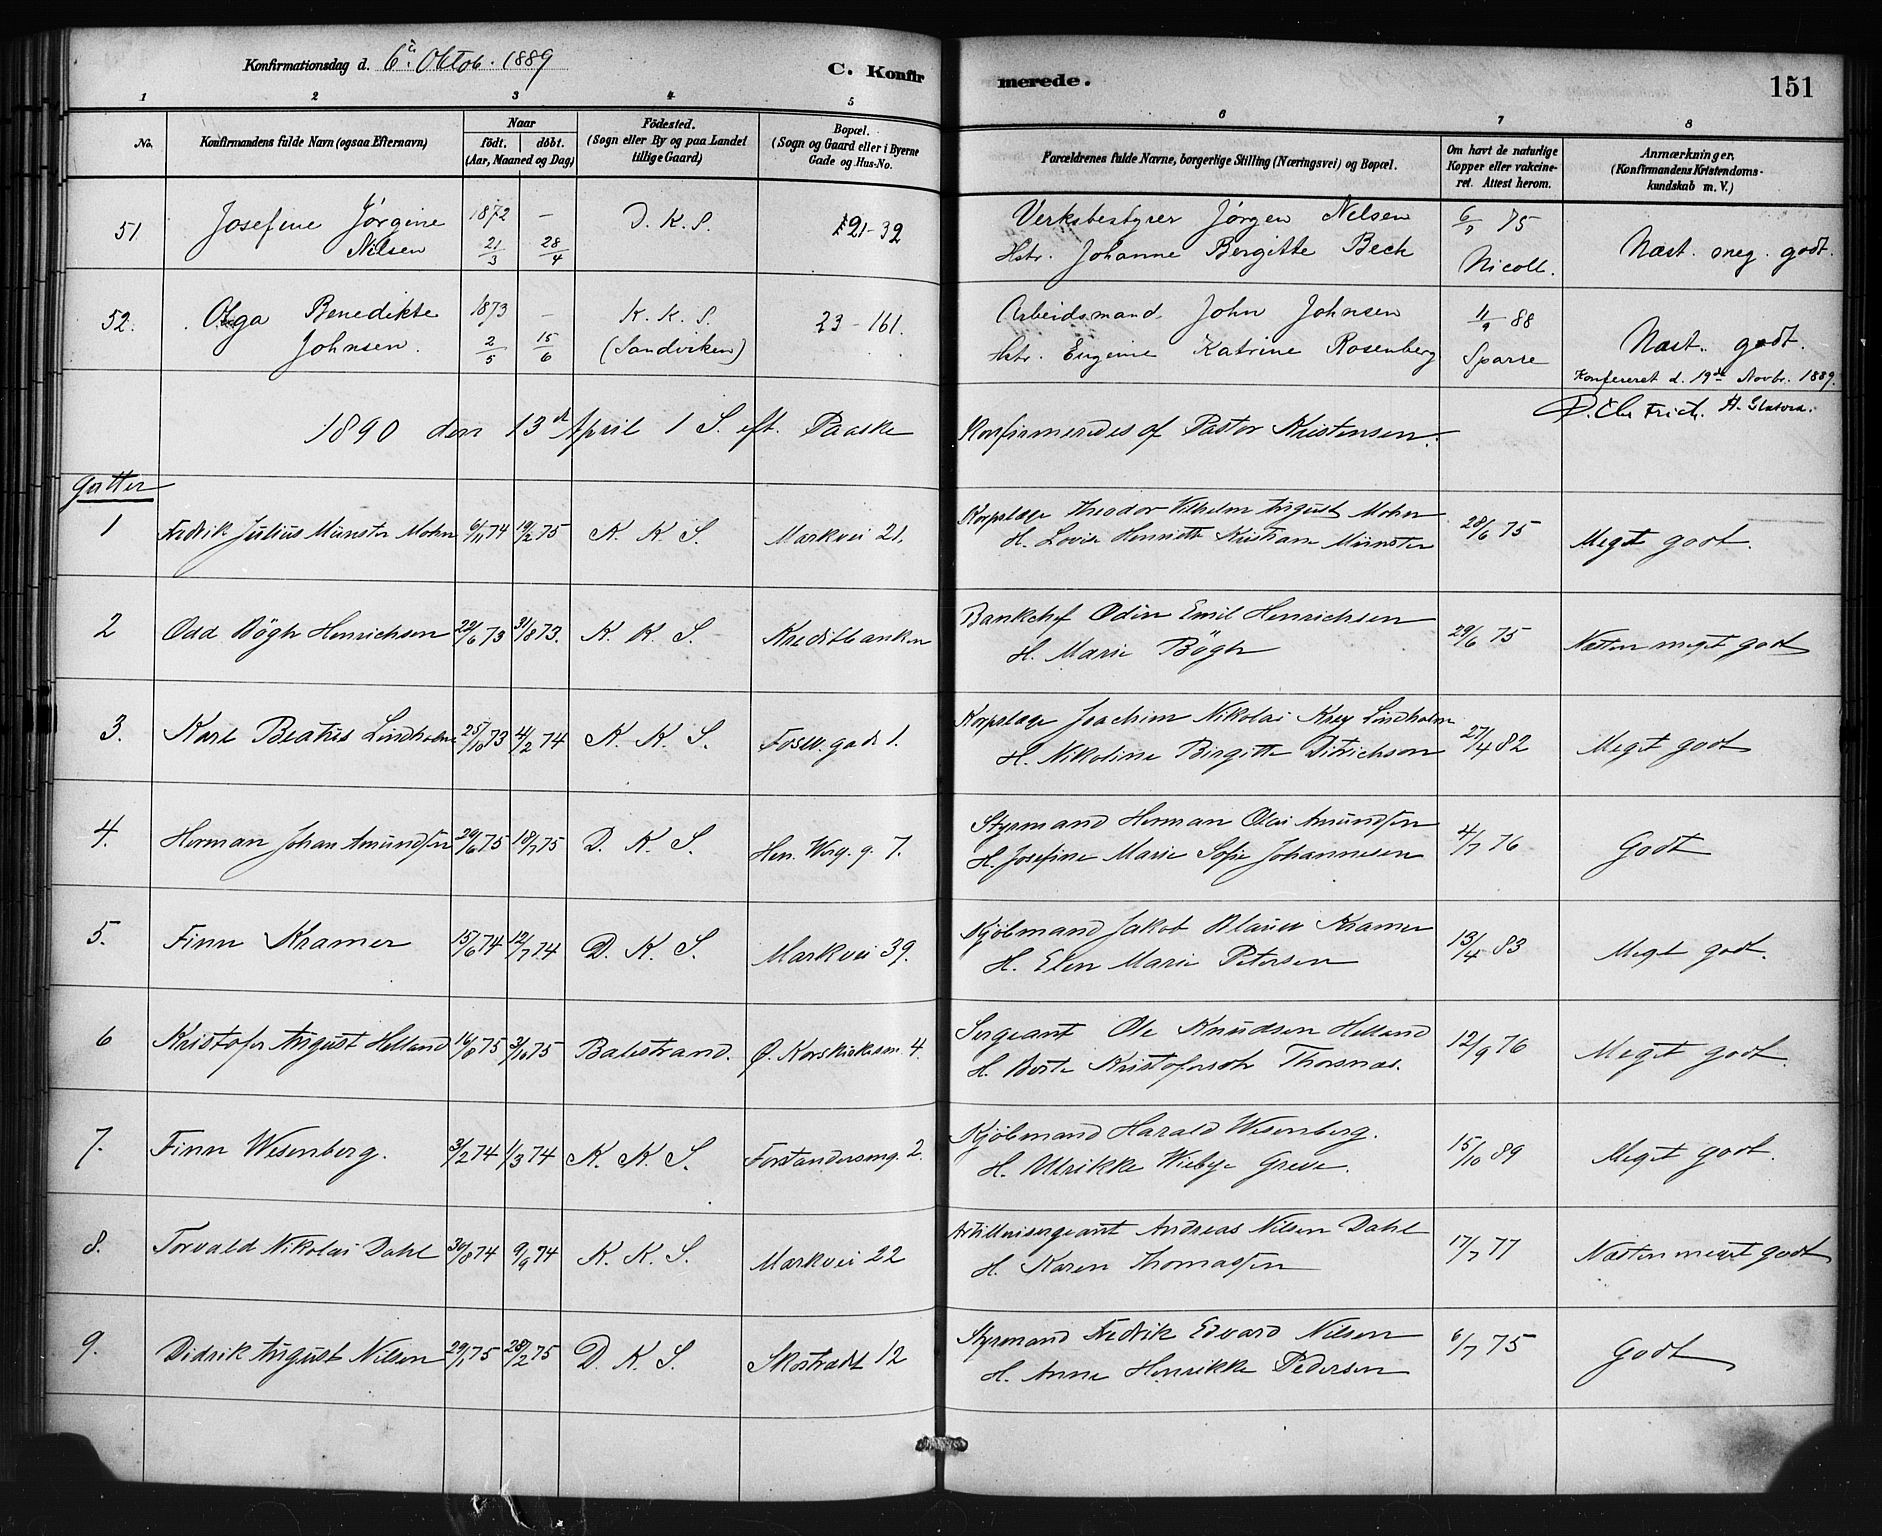 Konfirmationsdag d. 6te Oktob. 1889
C. Konfirmerede.
151
1 2 3 4 5 6 7 8
No.
Konfirmandens fulde Navn (ogsaa Efternavn)
Naar
födt. döbt.
(Aar, Maaned og Dag)
Födested.
(Sogn eller By og paa Landet
tillige Gaard)
Bopæl.
(Sogn og Gaard eller i Byerne
Gade og Hus-No.
Forældrenes fulde Navne, borgerlige Stilling (Næringsvei) og Bopæl.
Om havt de naturlige
Kopper eller vakcine-
ret. Attest herom.
Anmærkninger.
(Konfirmandens Kristendoms-
kundskab m. V.)
51 Josefine Jørgine 1872 — D. K. S. 21-32 Verksbestyrer Jørgen Nelsen 6/7 75
Nilsen 21/3 28/4 Hstr. Johanne Bergitte Beck Nicoll. Næst. meg. godt.
52. Olga Benedikte 1873 — K. K. S. 23-161. Arbeidsmand John Johnsen 11/9 88
Johnsen. 2/5 15/6 (Sandviken) Hstr. Eugenie Katrine Rosenberg Sparre Næst. godt.
Konfereret d. 19de Novbr. 1889.
1890 den 13de April 1 S. eft. Paaske Konfirmeredes af Pastor Kristensen.
Gutter
1 Fredrik Julius Münster Mohn 6/11 74 19/2 75 K. K. S. Markvei 21. Korpslæge Theodor Vilhelm August Mohn 28/6 75 Meget godt.
H. Lovise Henriette Kristiane Münster
2 Odd Bögh Henrichsen 22/6 73 31/8 73. K. K. S. Kreditbanken Bankchef Odin Emil Henrichsen 29/6 75 Næsten meget godt
H. Marie Bögh
3. Karl Beatus Lindholm 25/10 73 4/2 74 K. K. S. Fosw. gade 1. Korpslæge Joachim Nikolai Krey Lindholm 27/4 82 Meget godt
H. Nikoline Birgitte Ditrichson
4. Herman Johan Amundsen 29/6 75 18/7 75 D. K. S. Hen. Werg. g. 7. Styrmand Herman Olai Amundsen 4/7 76 Godt
H. Josefine Marie Sofie Johannesen
5. Finn Kramer 15/6 74 12/7 74 D. K. S. Markvei 39. Kjöbmand Jakob Blauw Kramer 13/4 83 Meget godt.
H. Elen Marie Petersen
6 Kristofer August Helland 16/8 75 3/10 75 Balestrand. Ø. Korskirkealm 4. Sergeant Ole Knudsen Helland 12/9 76 Meget godt.
H. Berte Kristofersdtr Thorsnæs.
7. Finn Wesenberg. 3/2 74 1/3 74 K. K. S. Forstandersmg. 2. Kjöbmand Harald Wesenberg. 15/10 89 Meget godt.
H. Ulrikke Wiebye Greve.
8. Torvald Nikolai Dahl 30/8 74 9/9 74 K. K. S. Markvei 22 Artillerisergeant Andreas Nilsen Dahl 17/7 77 Næsten meget godt
H. Karen Thomassen
9. Didrik August Nilsen 29/1 75 28/2 75 D. K. S. Skostrædet 12 Styrmand Fredrik Edvard Nilsen 6/7 75 Godt
H. Anne Henrikke Pedersen